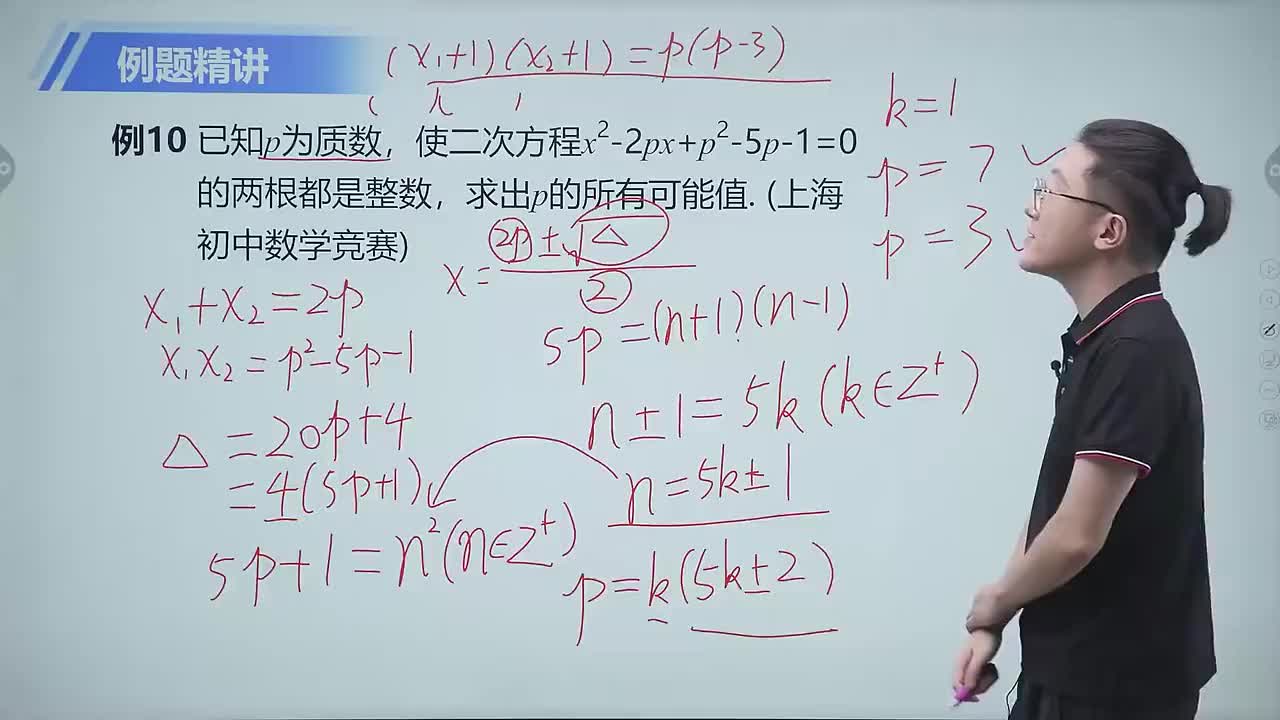 例题精讲
(x₁+1)(x₂+1)=p(p-3)
例10 已知p为质数，使二次方程x²-2px+p²-5p-1=0
的两根都是整数，求出p的所有可能值. (上海
初中数学竞赛)
k=1
p=7 ✓
p=3 ✓
x=(2p±√△)/2
x₁+x₂=2p
x₁x₂=p²-5p-1
△=20p+4
=4(5p+1)
5p+1=n²(n∈Z⁺)
5p=(n+1)(n-1)
n±1=5k(k∈Z⁺)
n=5k±1
p=k(5k±2)